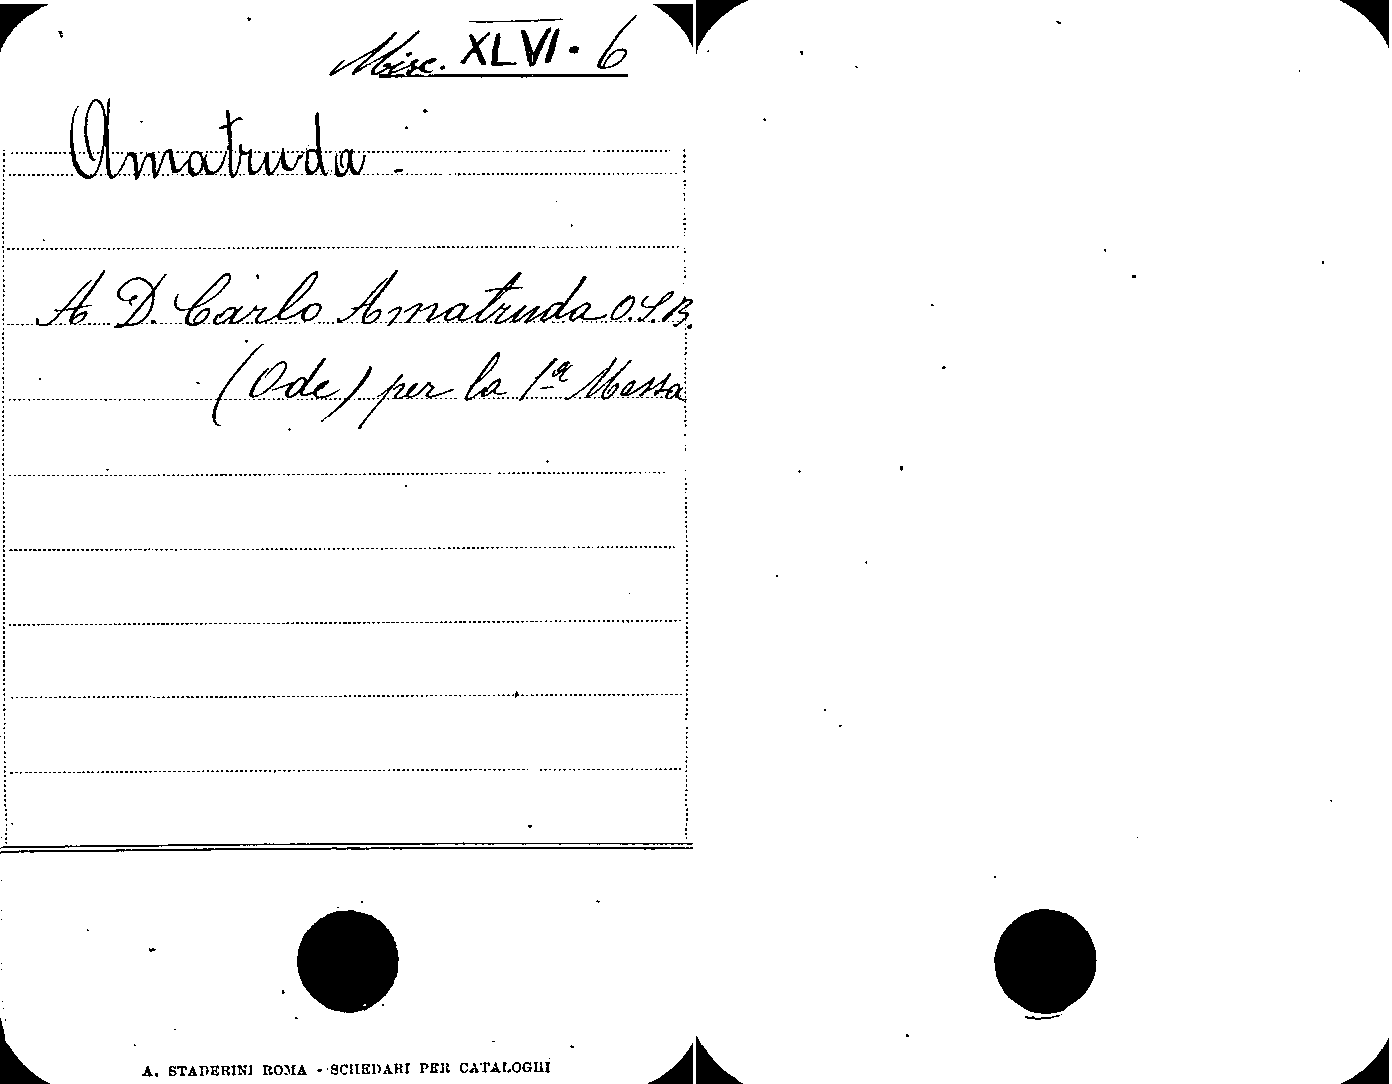 Misc. XLVI. 6
Amatruda -
A D. Carlo Amatruda O.S.B.
(Ode) per la 1ª Messa
A. STADERINI ROMA - SCHEDARI PER CATALOGHI